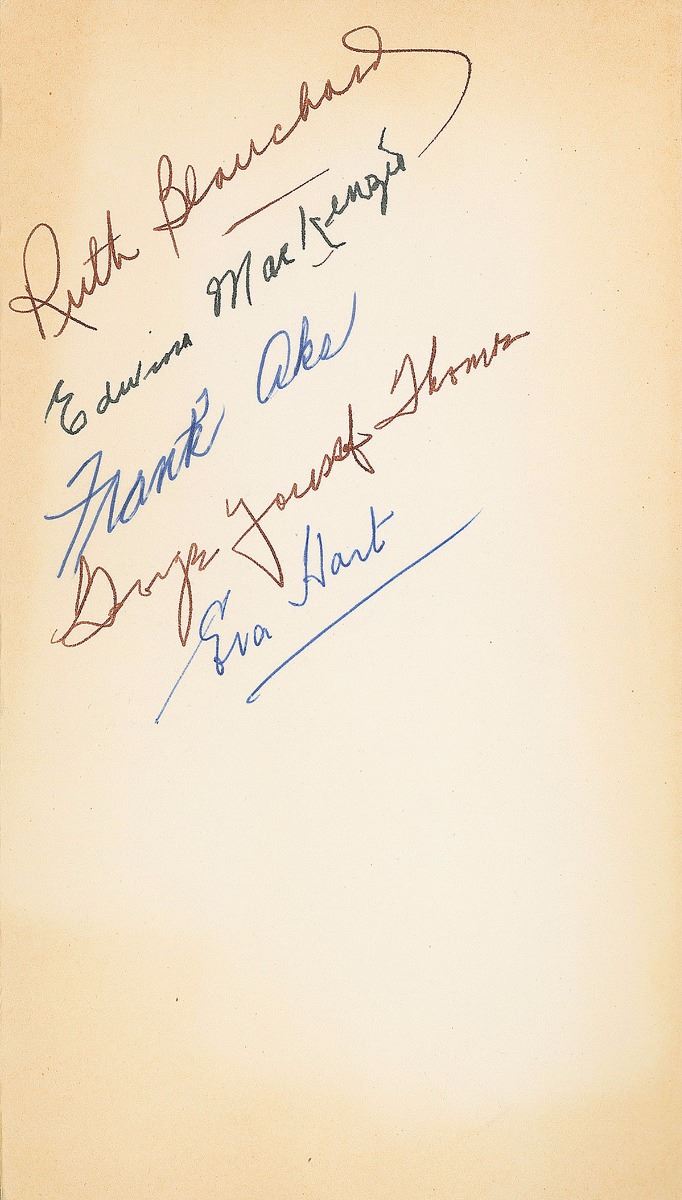 Ruth Blanchard
Edwina MacKenzie
Frank Aks
George Youssef Thomas
Eva Hart